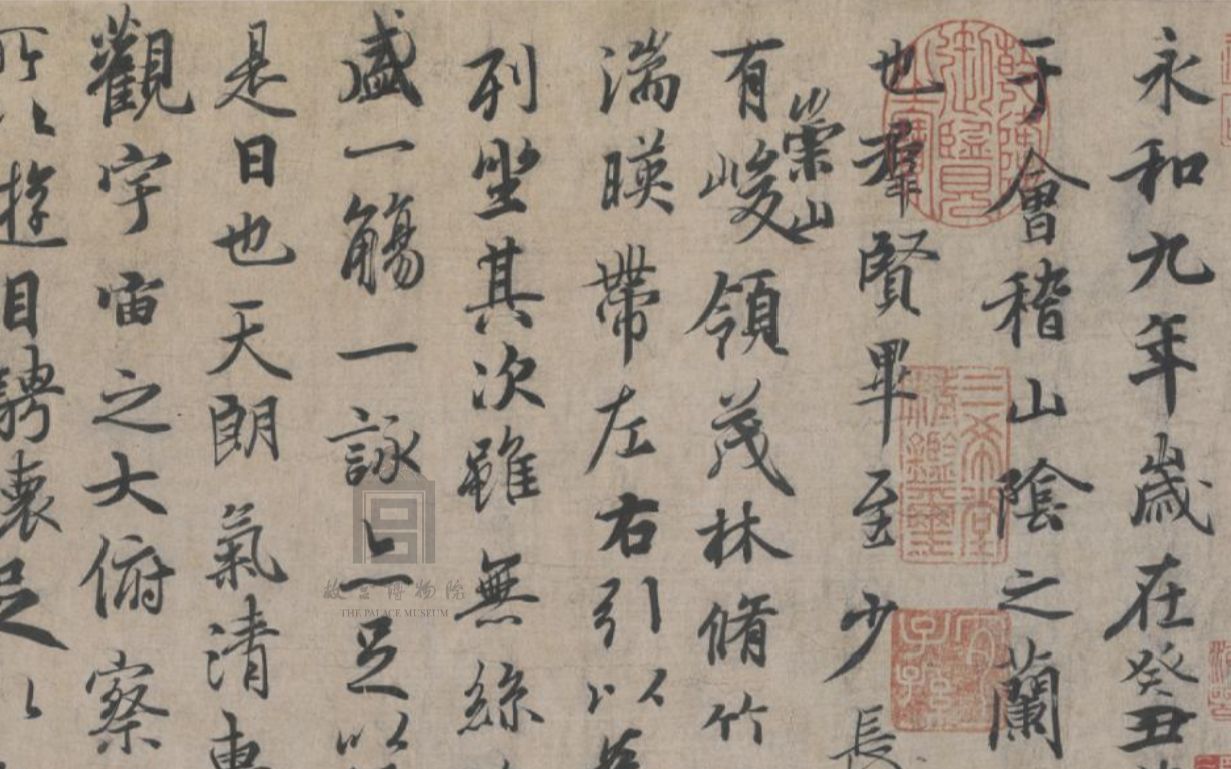 永和九年歲在癸丑
于會稽山陰之蘭
也羣賢畢至少長
有崇山峻領茂林脩竹
湍暎帶左右引以為
列坐其次雖無絲
盛一觴一詠亦足以
是日也天朗氣清惠
觀宇宙之大俯察
所以遊目騁懷足以
乾隆御覽之寶
三希堂精鑑璽
宜子孫
故宫博物院
THE PALACE MUSEUM